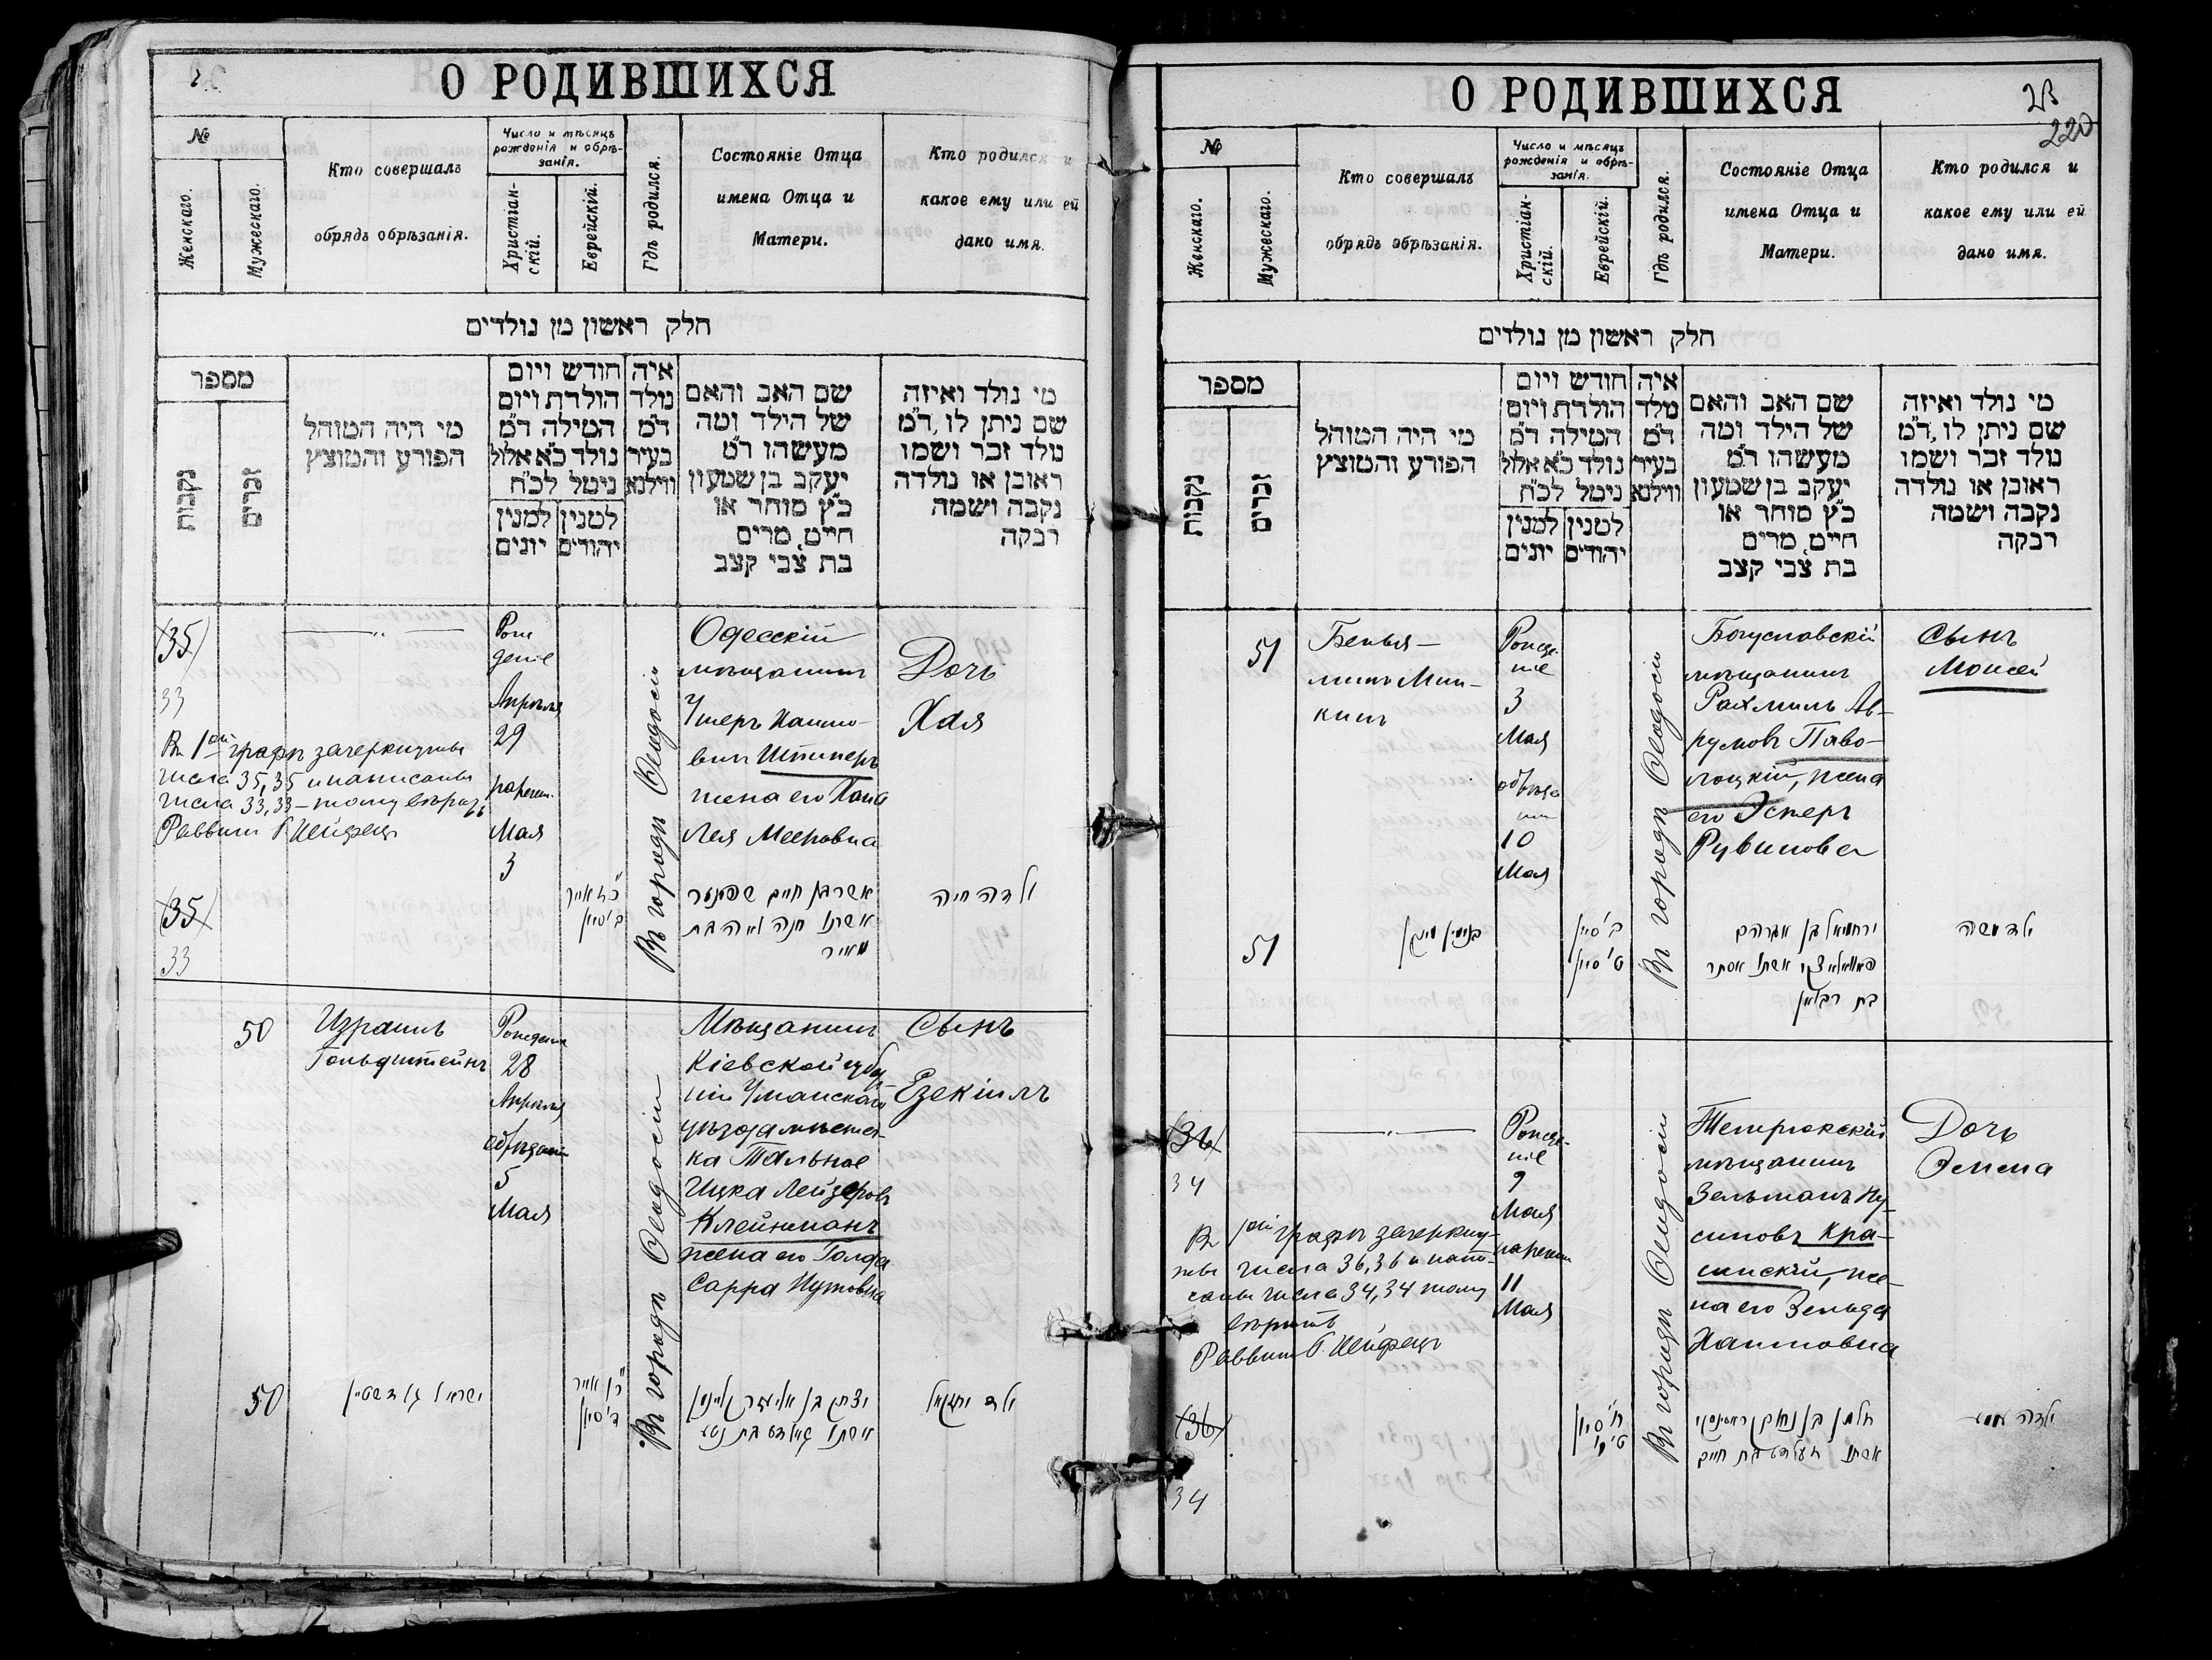 О РОДИВШИХСЯ
№
Женскаго.
Мужескаго.
Кто совершалъ
обрядъ обрѣзанія.
Число и мѣсяцъ
рожденія и обрѣ-
занія.
Христіан-
скій.
Еврейскій.
Гдѣ родился.
Состояніе Отца
имена Отца и
Матери.
Кто родился и
какое ему или ей
дано имя.
חלק ראשון מן נולדים
מספר
נקבות
זכרים
מי היה המוהל
הפורע והמוצץ
חודש ויום
הולדת ויום
המילה ד״מ
נולד כ״א אלול
ניטל לכ״ח
למנין
יונים
למנין
יהודים
איה
נולד
ד״מ
בעיר
ווילנא
שם האב והאם
של הילד ומה
מעשהו ד״מ
יעקב בן שמעון
כ״ץ סוחר או
חייט, מרים
בת צבי קצב
מי נולד ואיזה
שם ניתן לו, ד״מ
נולד זכר ושמו
ראובן או נולדה
נקבה ושמה
רבקה
35
33
Въ 1ой графѣ зачеркнуты
числа 35, 35 и написаны
числа 33, 33 – тому вѣрить
Раввинъ
35
33
Рож
деніе
Апрѣля
29
наречен.
Мая
3
Въ городѣ Ѳеодосіи
Одесскій
мѣщанинъ
Ушеръ Хаимо-
вичъ Штинеръ
жена его Хана
Лея Мееровна
Дочь
Хая
ילדה חיה
50
Израиль
Гольдштейнъ
Рожденіе
28
Апрѣля
обрѣзаніе
5
Мая
Въ городѣ Ѳеодосіи
Мѣщанинъ
Кіевской губер
ніи Уманскаго
уѣзда мѣстеч-
ка Тальное
Ицка Лейзеровъ
Клейнманъ
жена его Голда
Сарра Нутовна
Сынъ
Езекіилъ
50
ישראל גאלדשטיין
ילד יחזקאל
О РОДИВШИХСЯ
23
220
№
Женскаго.
Мужескаго.
Кто совершалъ
обрядъ обрѣзанія.
Число и мѣсяцъ
рожденія и обрѣ-
занія.
Христіан-
скій.
Еврейскій.
Гдѣ родился.
Состояніе Отца
имена Отца и
Матери.
Кто родился и
какое ему или ей
дано имя.
חלק ראשון מן נולדים
מספר
נקבות
זכרים
מי היה המוהל
הפורע והמוצץ
חודש ויום
הולדת ויום
המילה ד״מ
נולד כ״א אלול
ניטל לכ״ח
למנין
יונים
למנין
יהודים
איה
נולד
ד״מ
בעיר
ווילנא
שם האב והאם
של הילד ומה
מעשהו ד״מ
יעקב בן שמעון
כ״ץ סוחר או
חייט, מרים
בת צבי קצב
מי נולד ואיזה
שם ניתן לו, ד״מ
נולד זכר ושמו
ראובן או נולדה
נקבה ושמה
רבקה
51
Бенья-
минъ Мин-
кинъ
Рожде-
ніе
3
Мая
обрѣза
ніе
10
Мая
Въ городѣ Ѳеодосіи
Богуславскій
мѣщанинъ
Рахмиль Ав-
румовъ Паво-
лоцкій, жена
его Эстеръ
Рувинова
Сынъ
Моисей
51
ב׳ סיון
ט׳ סיון
ירחמיאל בן אברהם
אשתו אסתר
בת ראובן
ילד משה
36
34
Въ 1ой графѣ зачеркну-
ты числа 36, 36 и напи-
саны числа 34, 34 тому
вѣрить
Раввинъ
36
34
Рожде-
ніе
9
Мая
наречен
11
Мая
Въ городѣ Ѳеодосіи
Темрюкскій
мѣщанинъ
Зельманъ Ну-
симовъ Кра-
шинскій, же-
на его Зельда
Хаимовна
Дочь
Эмма
ח׳ סיון
אשתו זעלדא בת חיים